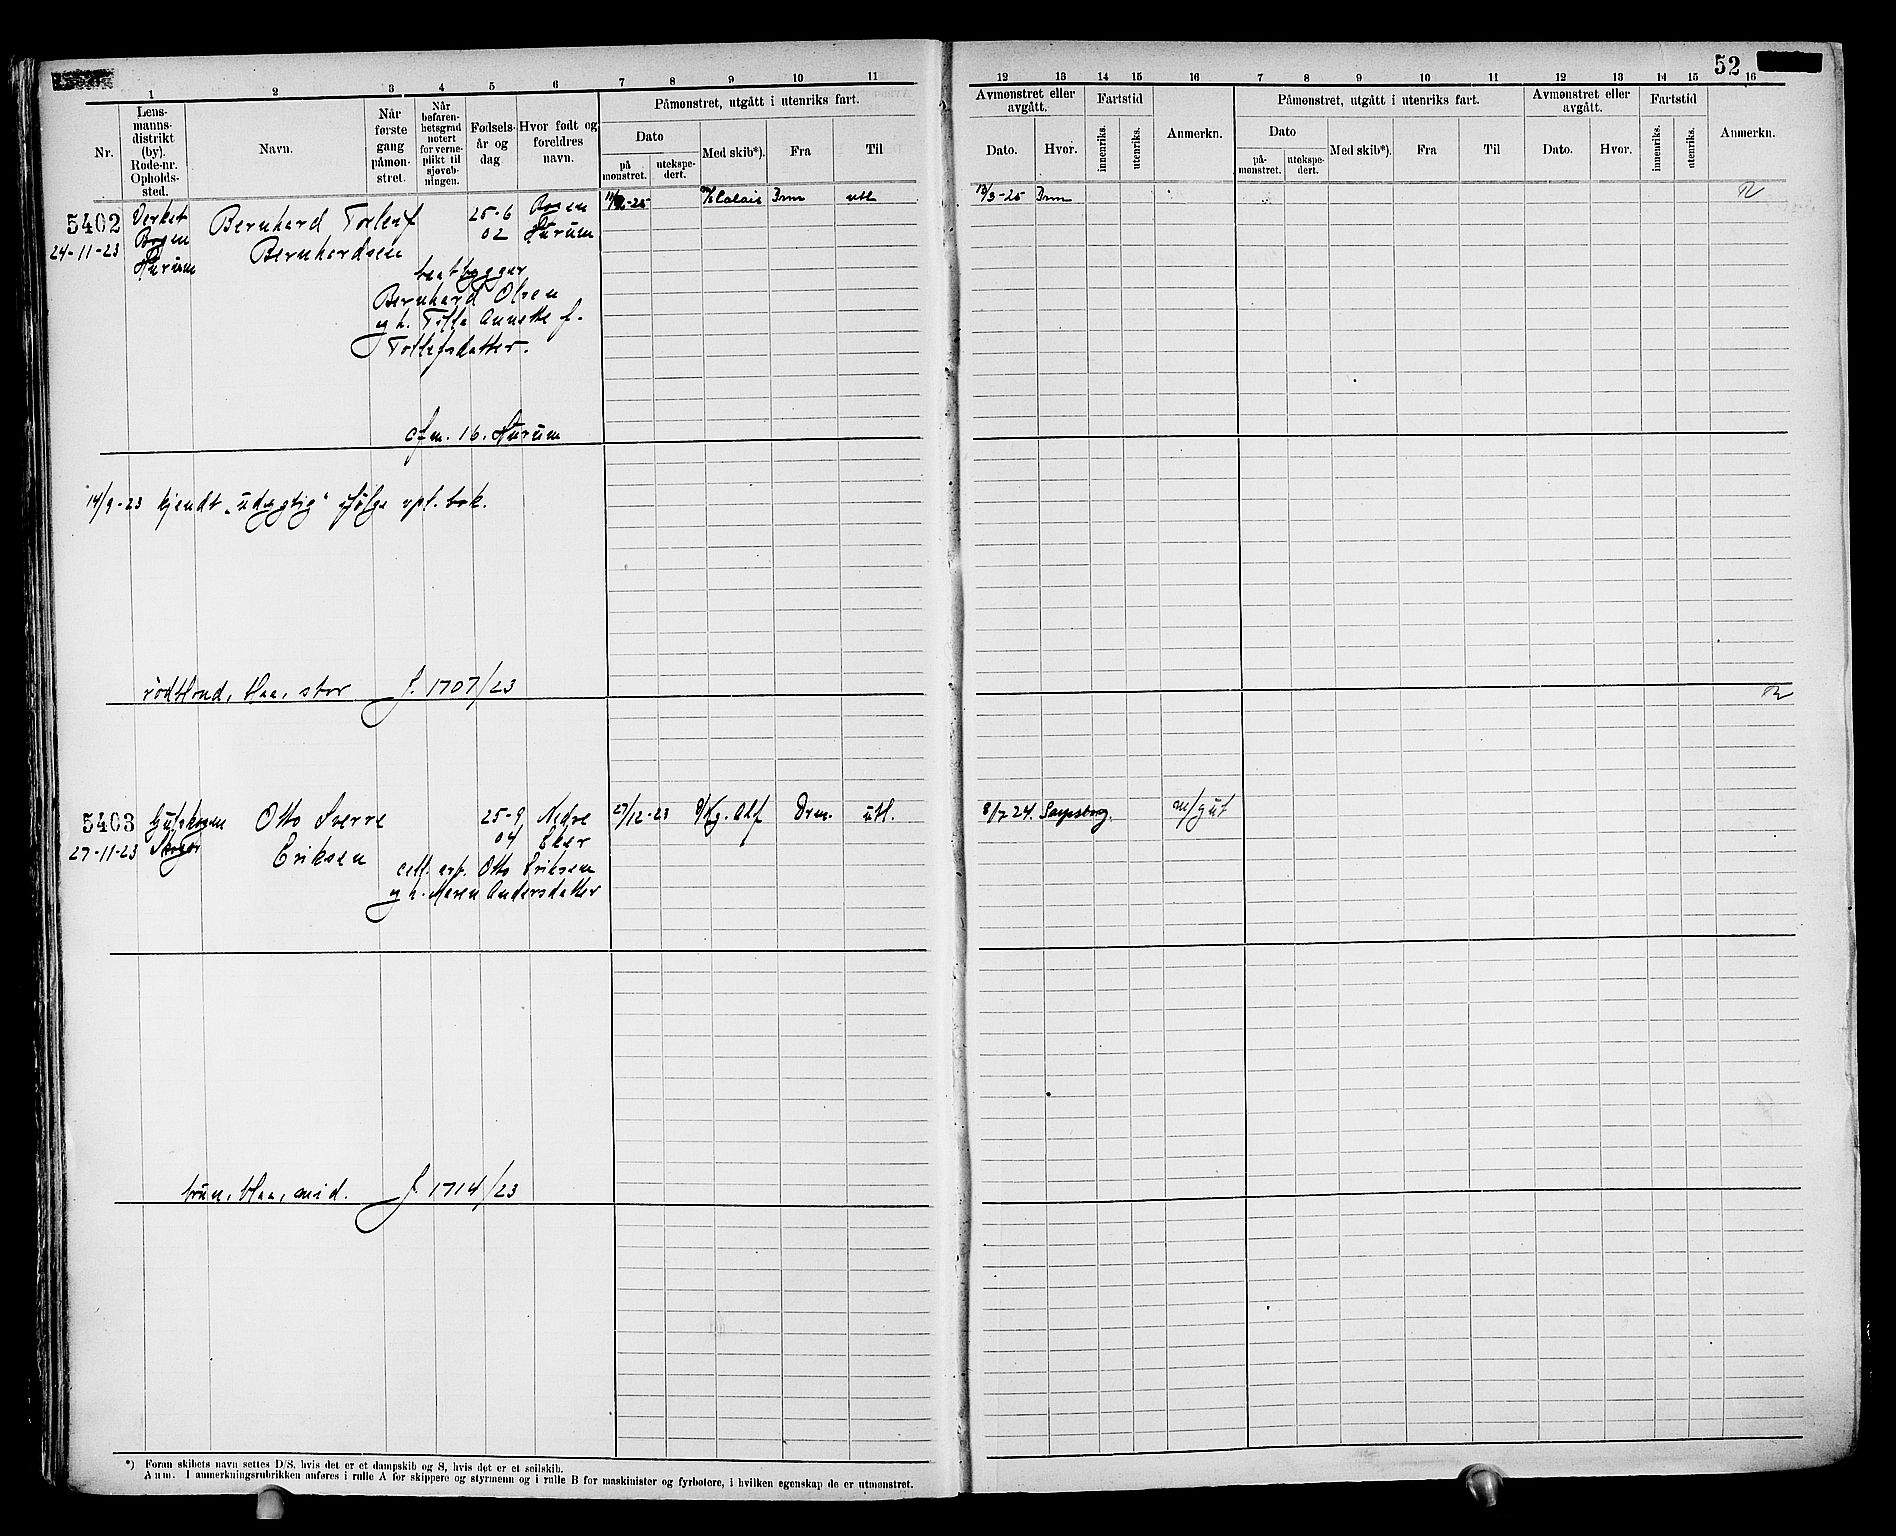 52
1 2 3 4 5 6 7 8 9 10 11
Nr.
Lens-
manns-
distrikt
(by).
Rode-nr.
Opholds-
sted.
Navn.
Når
første
gang
påmøn-
stret.
Når
befaren-
hetsgrad
notert
for verne-
plikt til
sjøøveb-
ningen.
Fødsels-
år og
dag.
Hvor født og
foreldres
navn.
Påmønstret, utgått i utenriks fart.
Dato
på
mønstret.
utekspe-
dert.
Med skib*).
Fra
Til
12 13 14 15 16 7 8 9 10 11 12 13 14 15 16
Avmønstret eller
avgått.
Dato.
Hvor.
Fartstid
innenriks.
utenriks.
Anmerkn.
Påmønstret, utgått i utenriks fart.
Dato
på-
mønstret.
utekspe-
dert.
Med skib*).
Fra
Til
Avmønstret eller
avgått.
Dato.
Hvor.
Fartstid
innenriks.
utenriks.
Anmerkn.
5402 Verket Bernhard Torleif 25-6 Bogen Calais Drm utl 13/3-25 Drm
24-11-23 Bogen Bernhardsen 02 Hurum
Hurum
baatbygger
Bernhard Olsen
og h. Tilla Annette f.
Tollefsdatter.
cfm. 16. Hurum
14/9-23 kjendt „udygtig" ifølge vpl. bok.
rødblond, blaa, stor J. 1707/23
5403 Otto Sverre 25-9 Nedre 27/12-23 Kg. Alf Drm. utl. 8/7 24. Sarpsborg. m/gut
27-11-23 Eriksen 04 Eker
cell. arb. Otto Eriksen
og h. Maren Andersdatter
brun, blaa, mid. J. 1714/23
*) Foran skibets navn settes D/S, hvis det er et dampskib og S, hvis det er et seilskib.
Anm. I anmerkningsrubrikken anføres i rulle A for skippere og styrmenn og i rulle B for maskinister og fyrbøtere, i hvilken egenskap de er utmønstret.